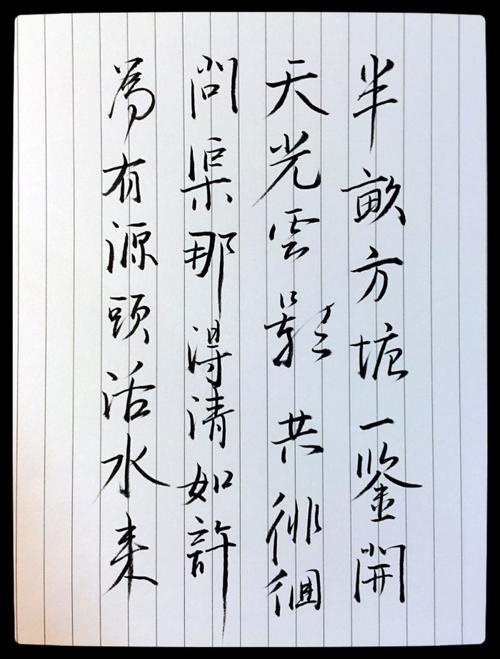 半畝方塘一鉴開
天光雲影共徘徊
問渠那得清如許
為有源頭活水来